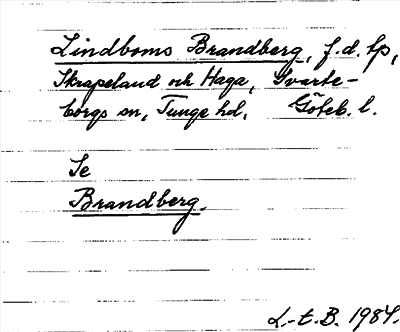 Lindboms Brandberg, f.d. tp,
Skrapeland och Haga, Svarte-
borgs sn, Tunge hd, Göteb. l.
Se
Brandberg.
L.-t.B. 1984.